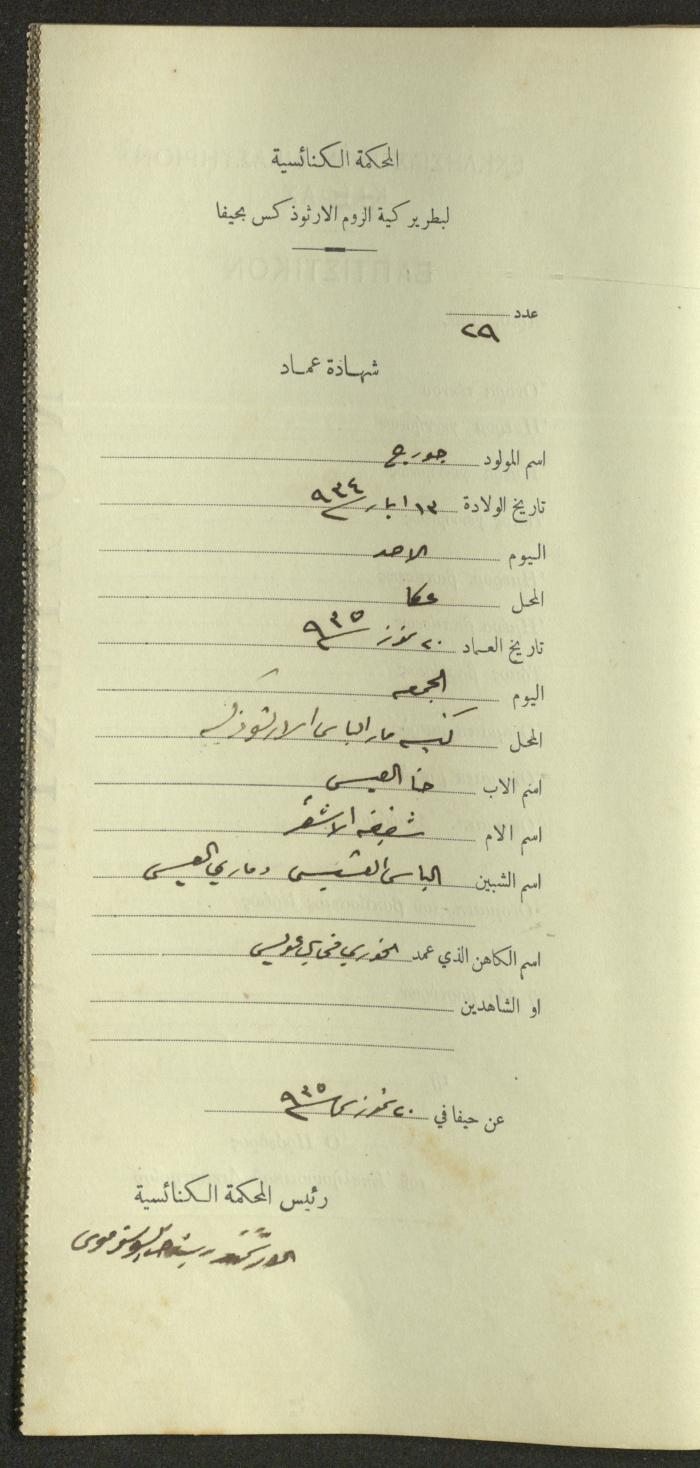 المحكمة الكنائسية
لبطريركية الروم الارثوذكس بحيفا
عدد ٢٩
شهادة عماد
اسم المولود جورج
تاريخ الولادة ١٣ ايار ٩٣٤
اليوم الاحد
المحل عكا
تاريخ العماد ٢٠ تموز ٩٣٥
اليوم الجمعه
المحل كنيسه مار الياس الارثوذكسيه
اسم الاب حنا العيسى
اسم الام شفيقه الاشقر
اسم الشبين الياس القسيس وماري العيسى
اسم الكاهن الذي عمد الخوري
او الشاهدين
عن حيفا في ٢٠ تموز ٩٣٥
رئيس المحكمة الكنائسية